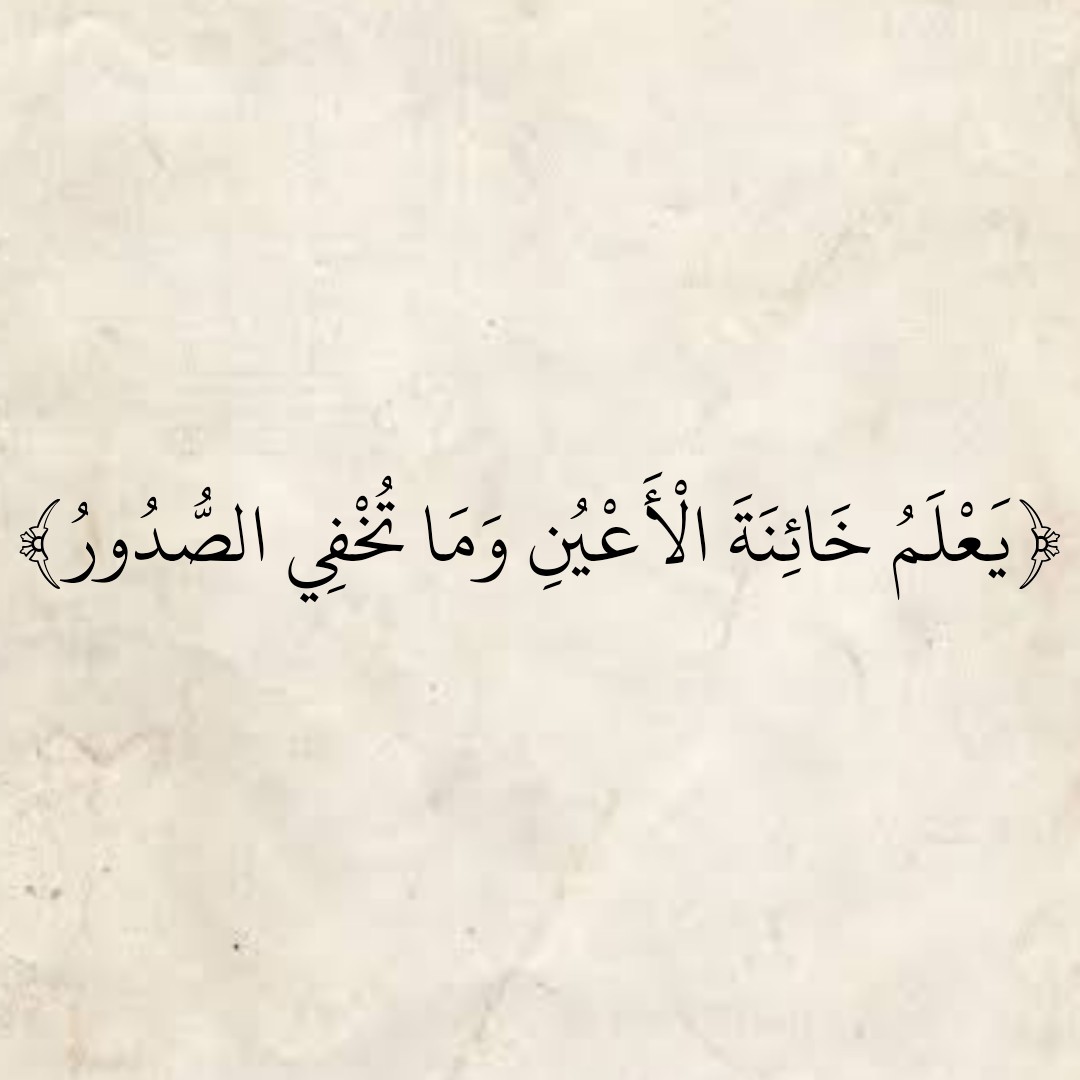 ﴿يَعْلَمُ خَائِنَةَ الْأَعْيُنِ وَمَا تُخْفِي الصُّدُورُ﴾